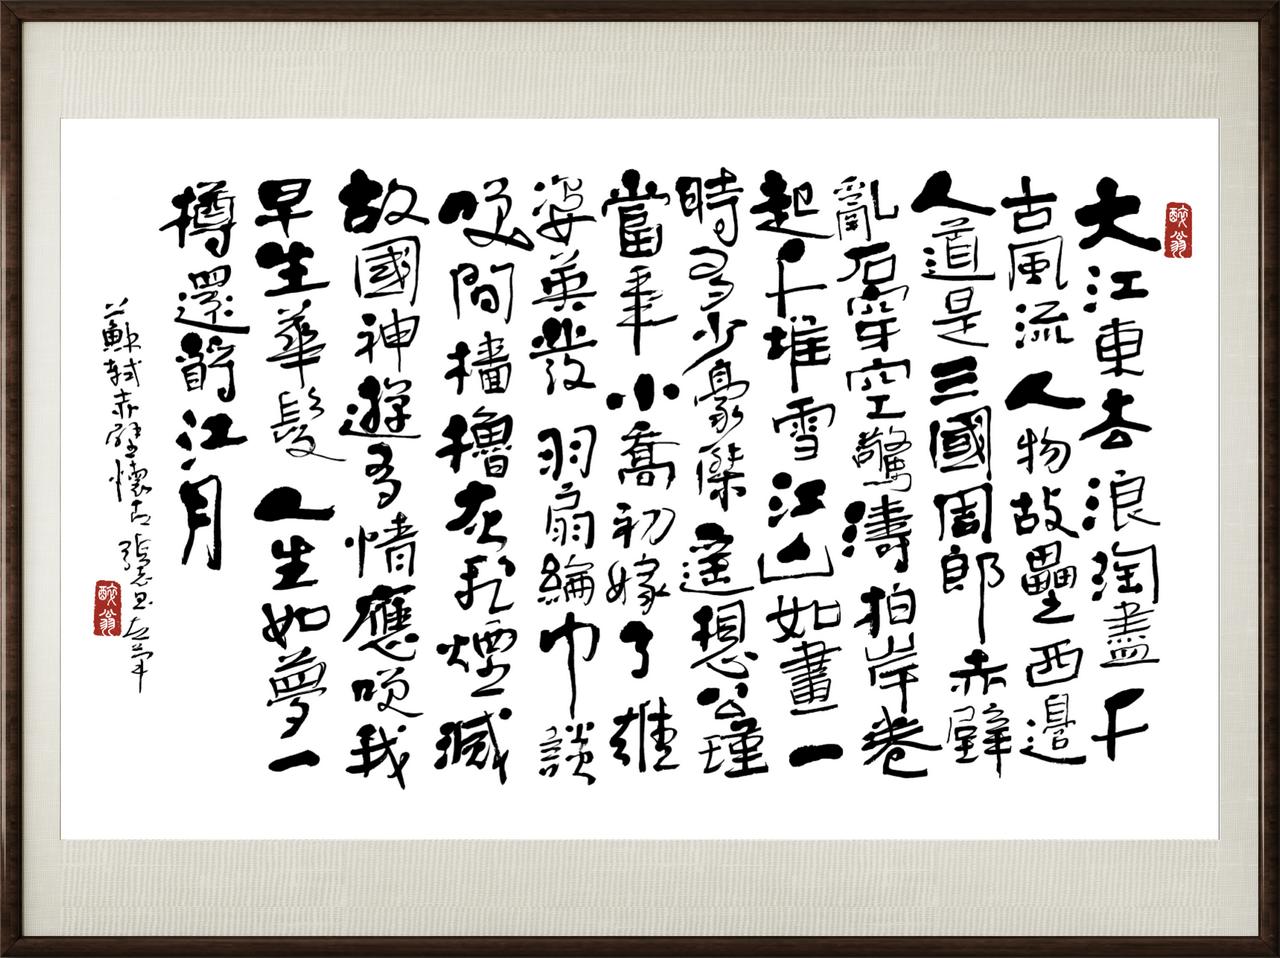 醉翁
大江東去浪淘盡千
古風流人物故壘西邊
人道是三國周郎赤壁
亂石穿空驚濤拍岸卷
起千堆雪江山如畫一
時多少豪傑遙想公瑾
當年小喬初嫁了雄
姿英發羽扇綸巾談
咲間檣櫓灰飛煙滅
故國神遊多情應咲我
早生華髮人生如夢一
樽還酹江月
蘇軾赤壁懷古 張志
醉翁